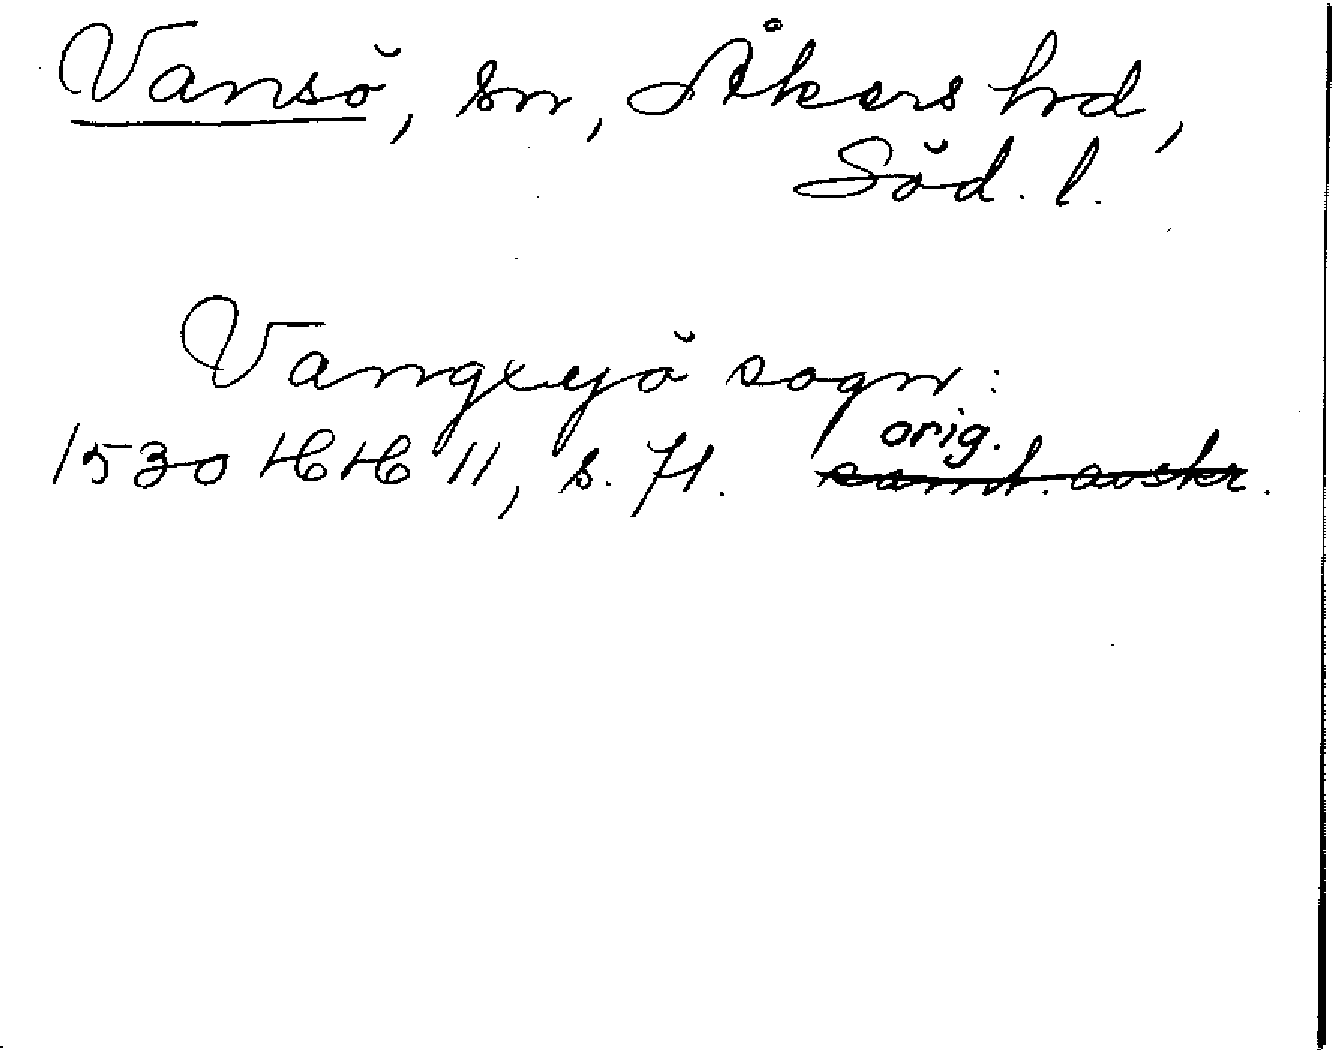 Vansö, sn, Åkers hrd,
Söd. l.
Vangxyö sogn:
orig.
1530 HH 11, s. 71. samt. avskr.